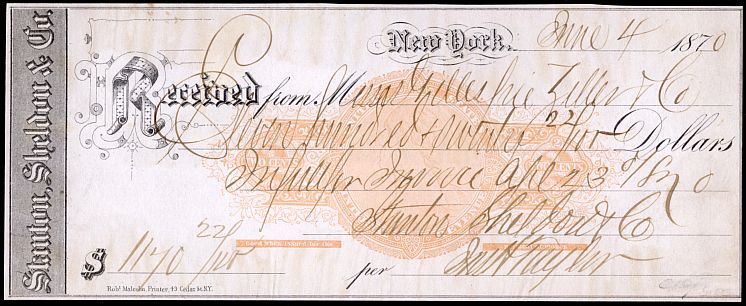 Stanton, Sheldon & Co.
New York, June 4 1870
Received from Mess Gillespie Zeller & Co
Eleven hundred & 22/100 Dollars
In full for Invoice Apl 23 1870
Stanton Sheldon & Co
GOOD WHEN ISSUED FOR THE
$ 1170 22/100
per
Robt Malcolm, Printer, 43 Cedar St. N.Y.